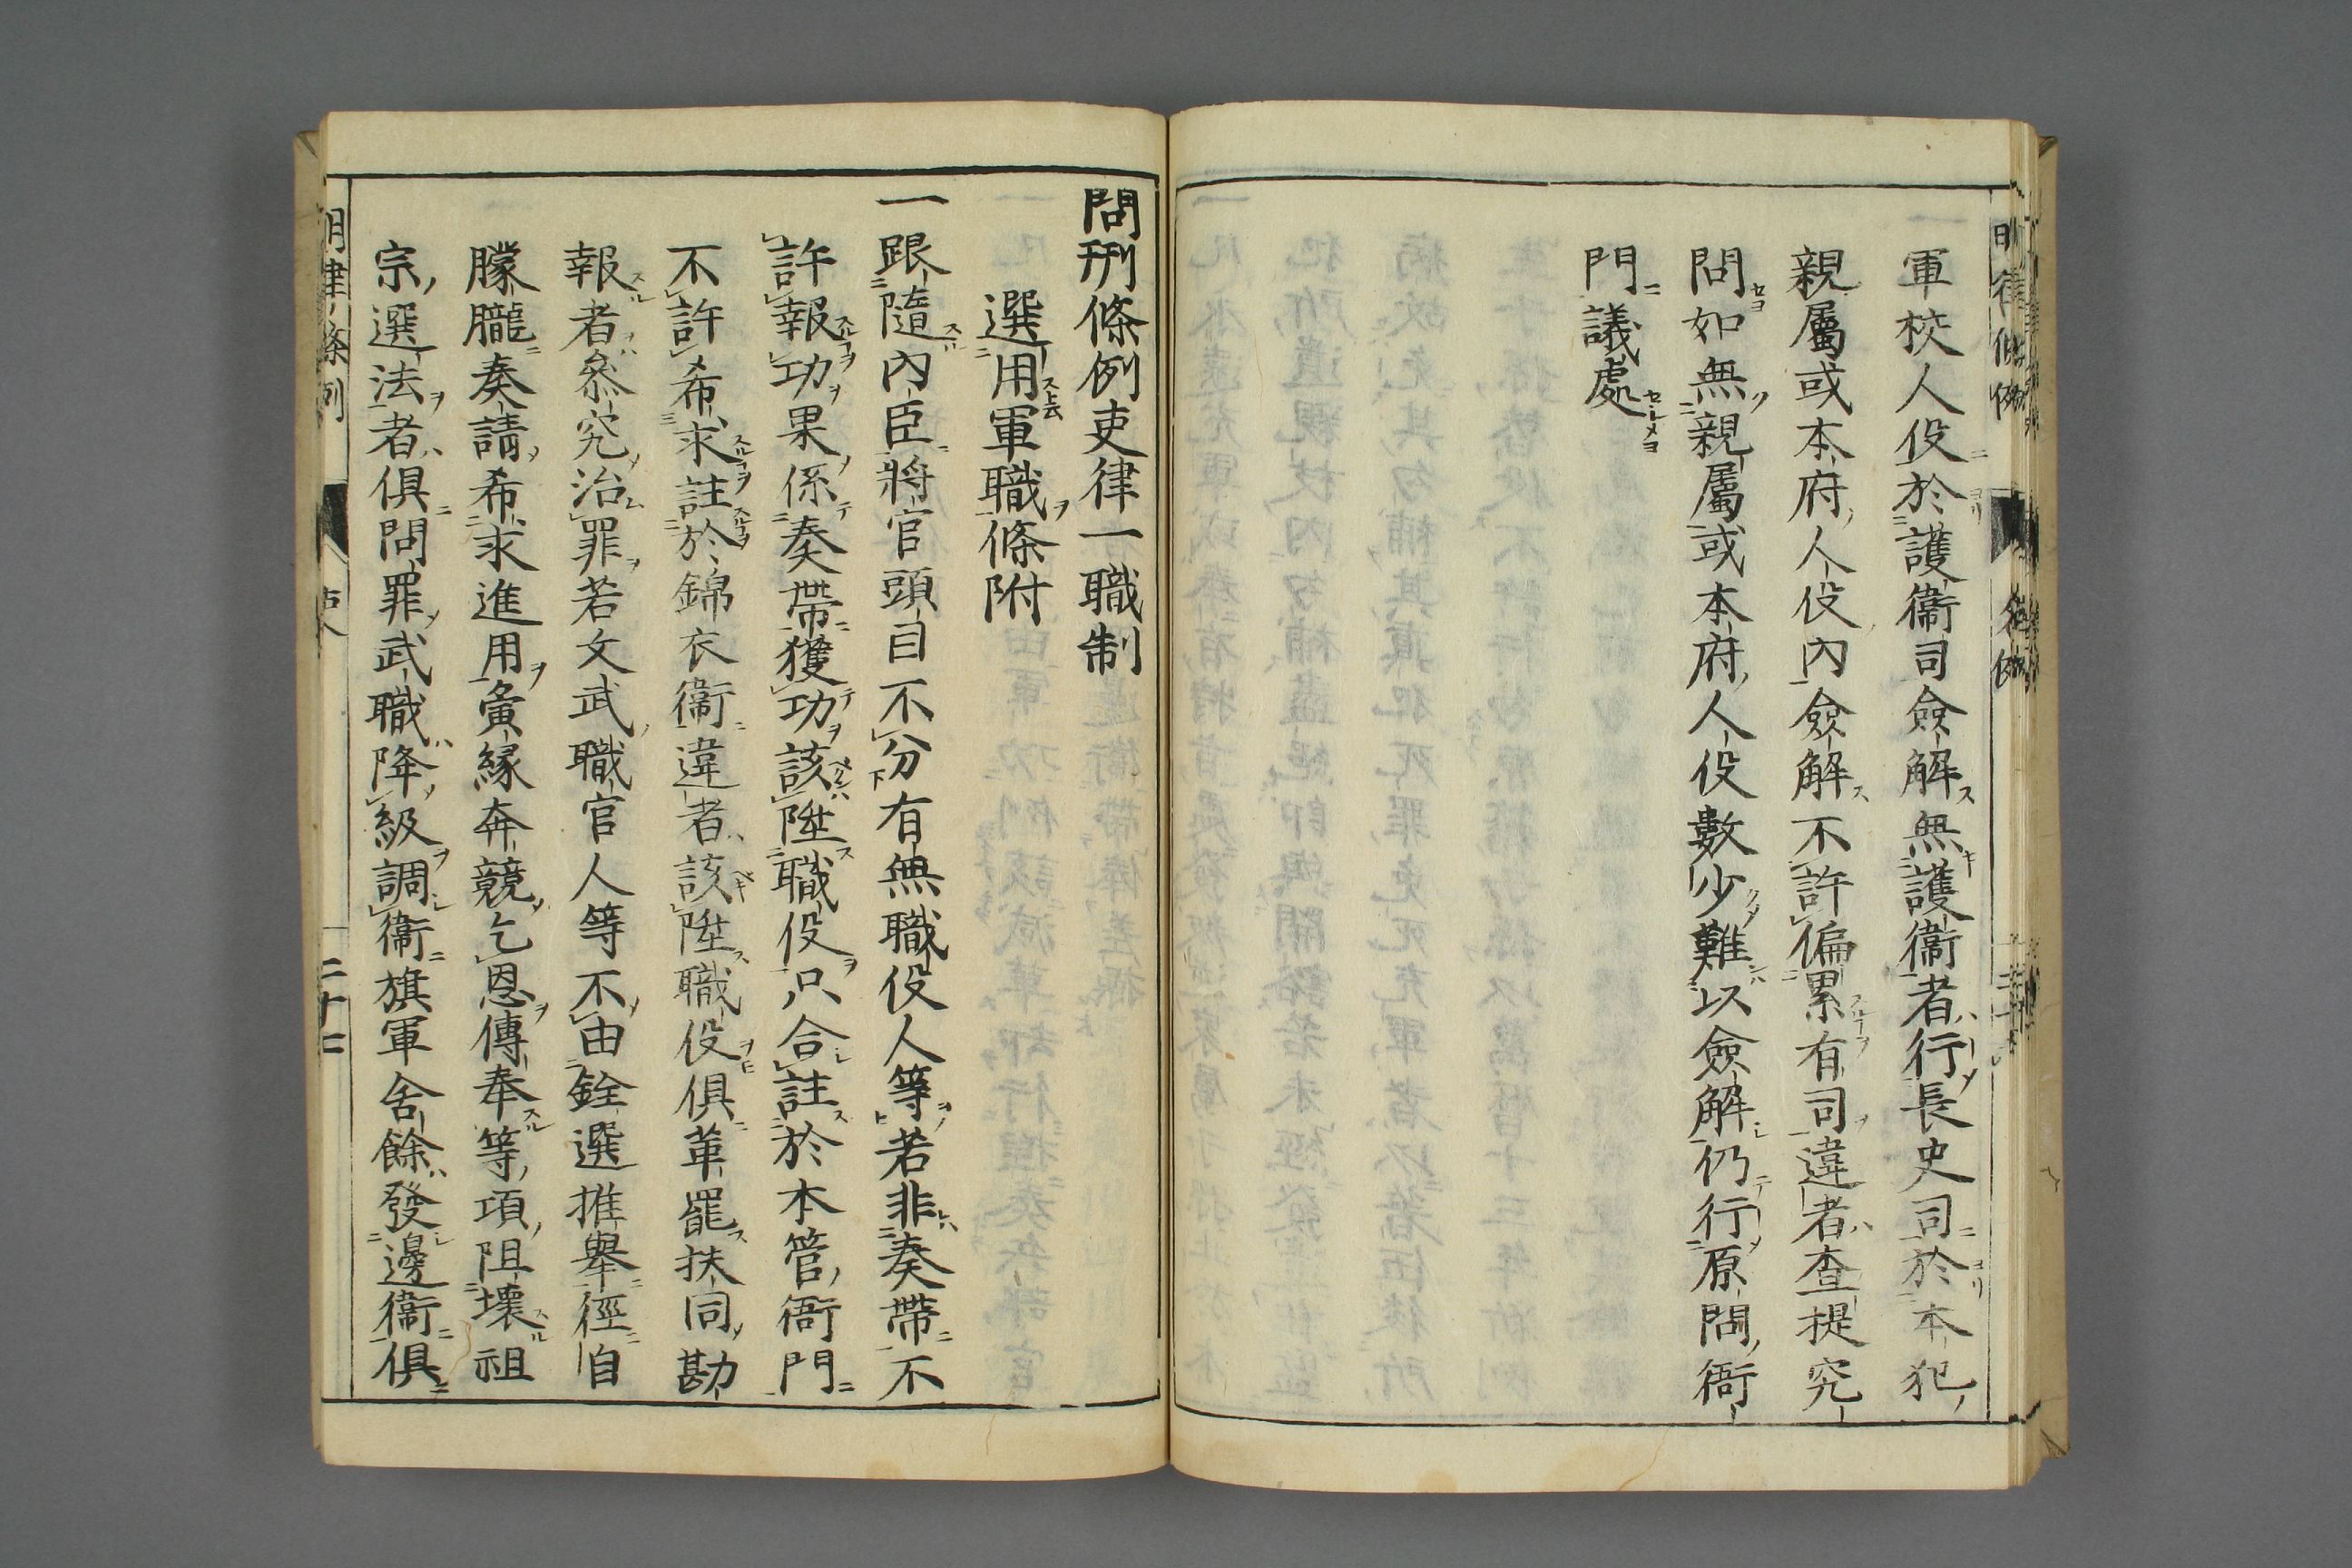 軍校人役於護衞司僉解無護衞者行長史司於本犯
親屬或本府人役內僉解不許偏累有司違者查提究
問如無親屬或本府人役數少難以僉解仍行原問衙
門議處
問刑條例吏律一職制
選用軍職條附
一跟隨內臣將官頭目不分有無職役人等若非奏帶不
許報功果係奏帶獲功該陞職役只合註於本管衙門
不許希求註於錦衣衞違者該陞職役俱革罷扶同勘
報者參究治罪若文武職官人等不由銓選推舉徑自
朦朧奏請希求進用夤緣奔競乞恩傳奉等項阻壞祖
宗選法者俱問罪武職降級調衞旗軍舍餘發邊衞俱
明律條例 二十七